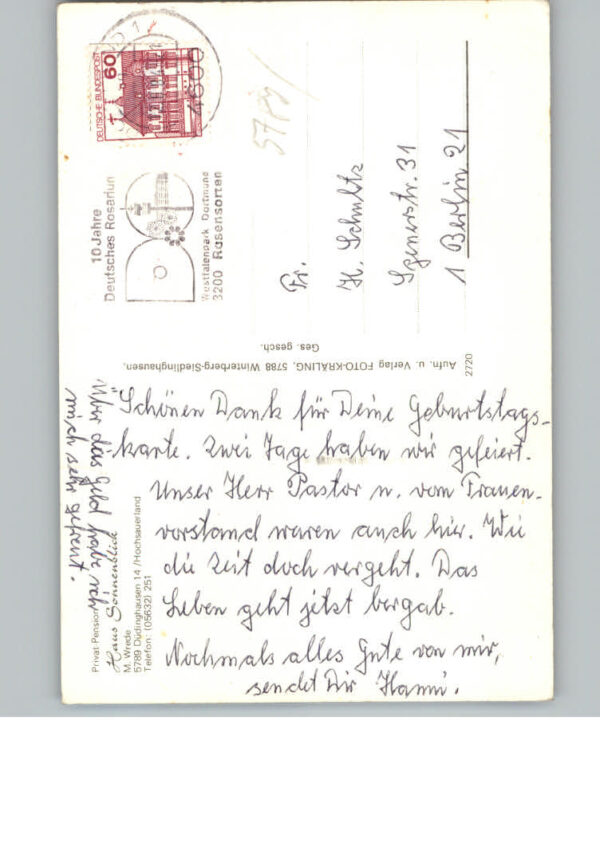 Schönen Dank für Deine Geburtstags-
karte. Zwei Tage haben wir gefeiert.
Unser Herr Pastor u. vom Frauen-
vorstand waren auch hier. Wie
die Zeit doch vergeht. Das
Leben geht jetzt bergab.
Nochmals alles Gute von mir,
sendet Dir Hanni.
Über das Geld habe ich
mich sehr gefreut.
Privat-Pension
Haus Sonnenblick
M. Wrede
5789 Düdinghausen 14 /Hochsauerland
Telefon: (05632) 251
Aufn. u. Verlag FOTO-KRÄLING, 5788 Winterberg-Siedlinghausen,
Ges. gesch.
2720
DEUTSCHE BUNDESPOST
60
4600
10 Jahre
Deutsches Rosarium
Westfalenpark Dortmund
3200 Rosensorten
5789
Fr.
H. Schultz
31
1 Berlin 21